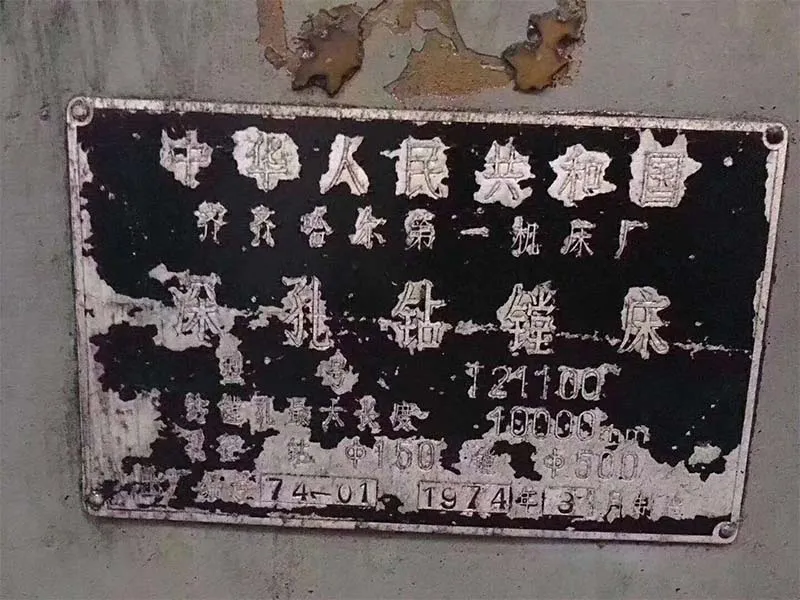 中华人民共和国
齐齐哈尔第一机床厂
深孔钻镗床
型号 T21100
钻镗孔最大长度 10000mm
钻 φ150 φ500
74-01 1974年3月制造